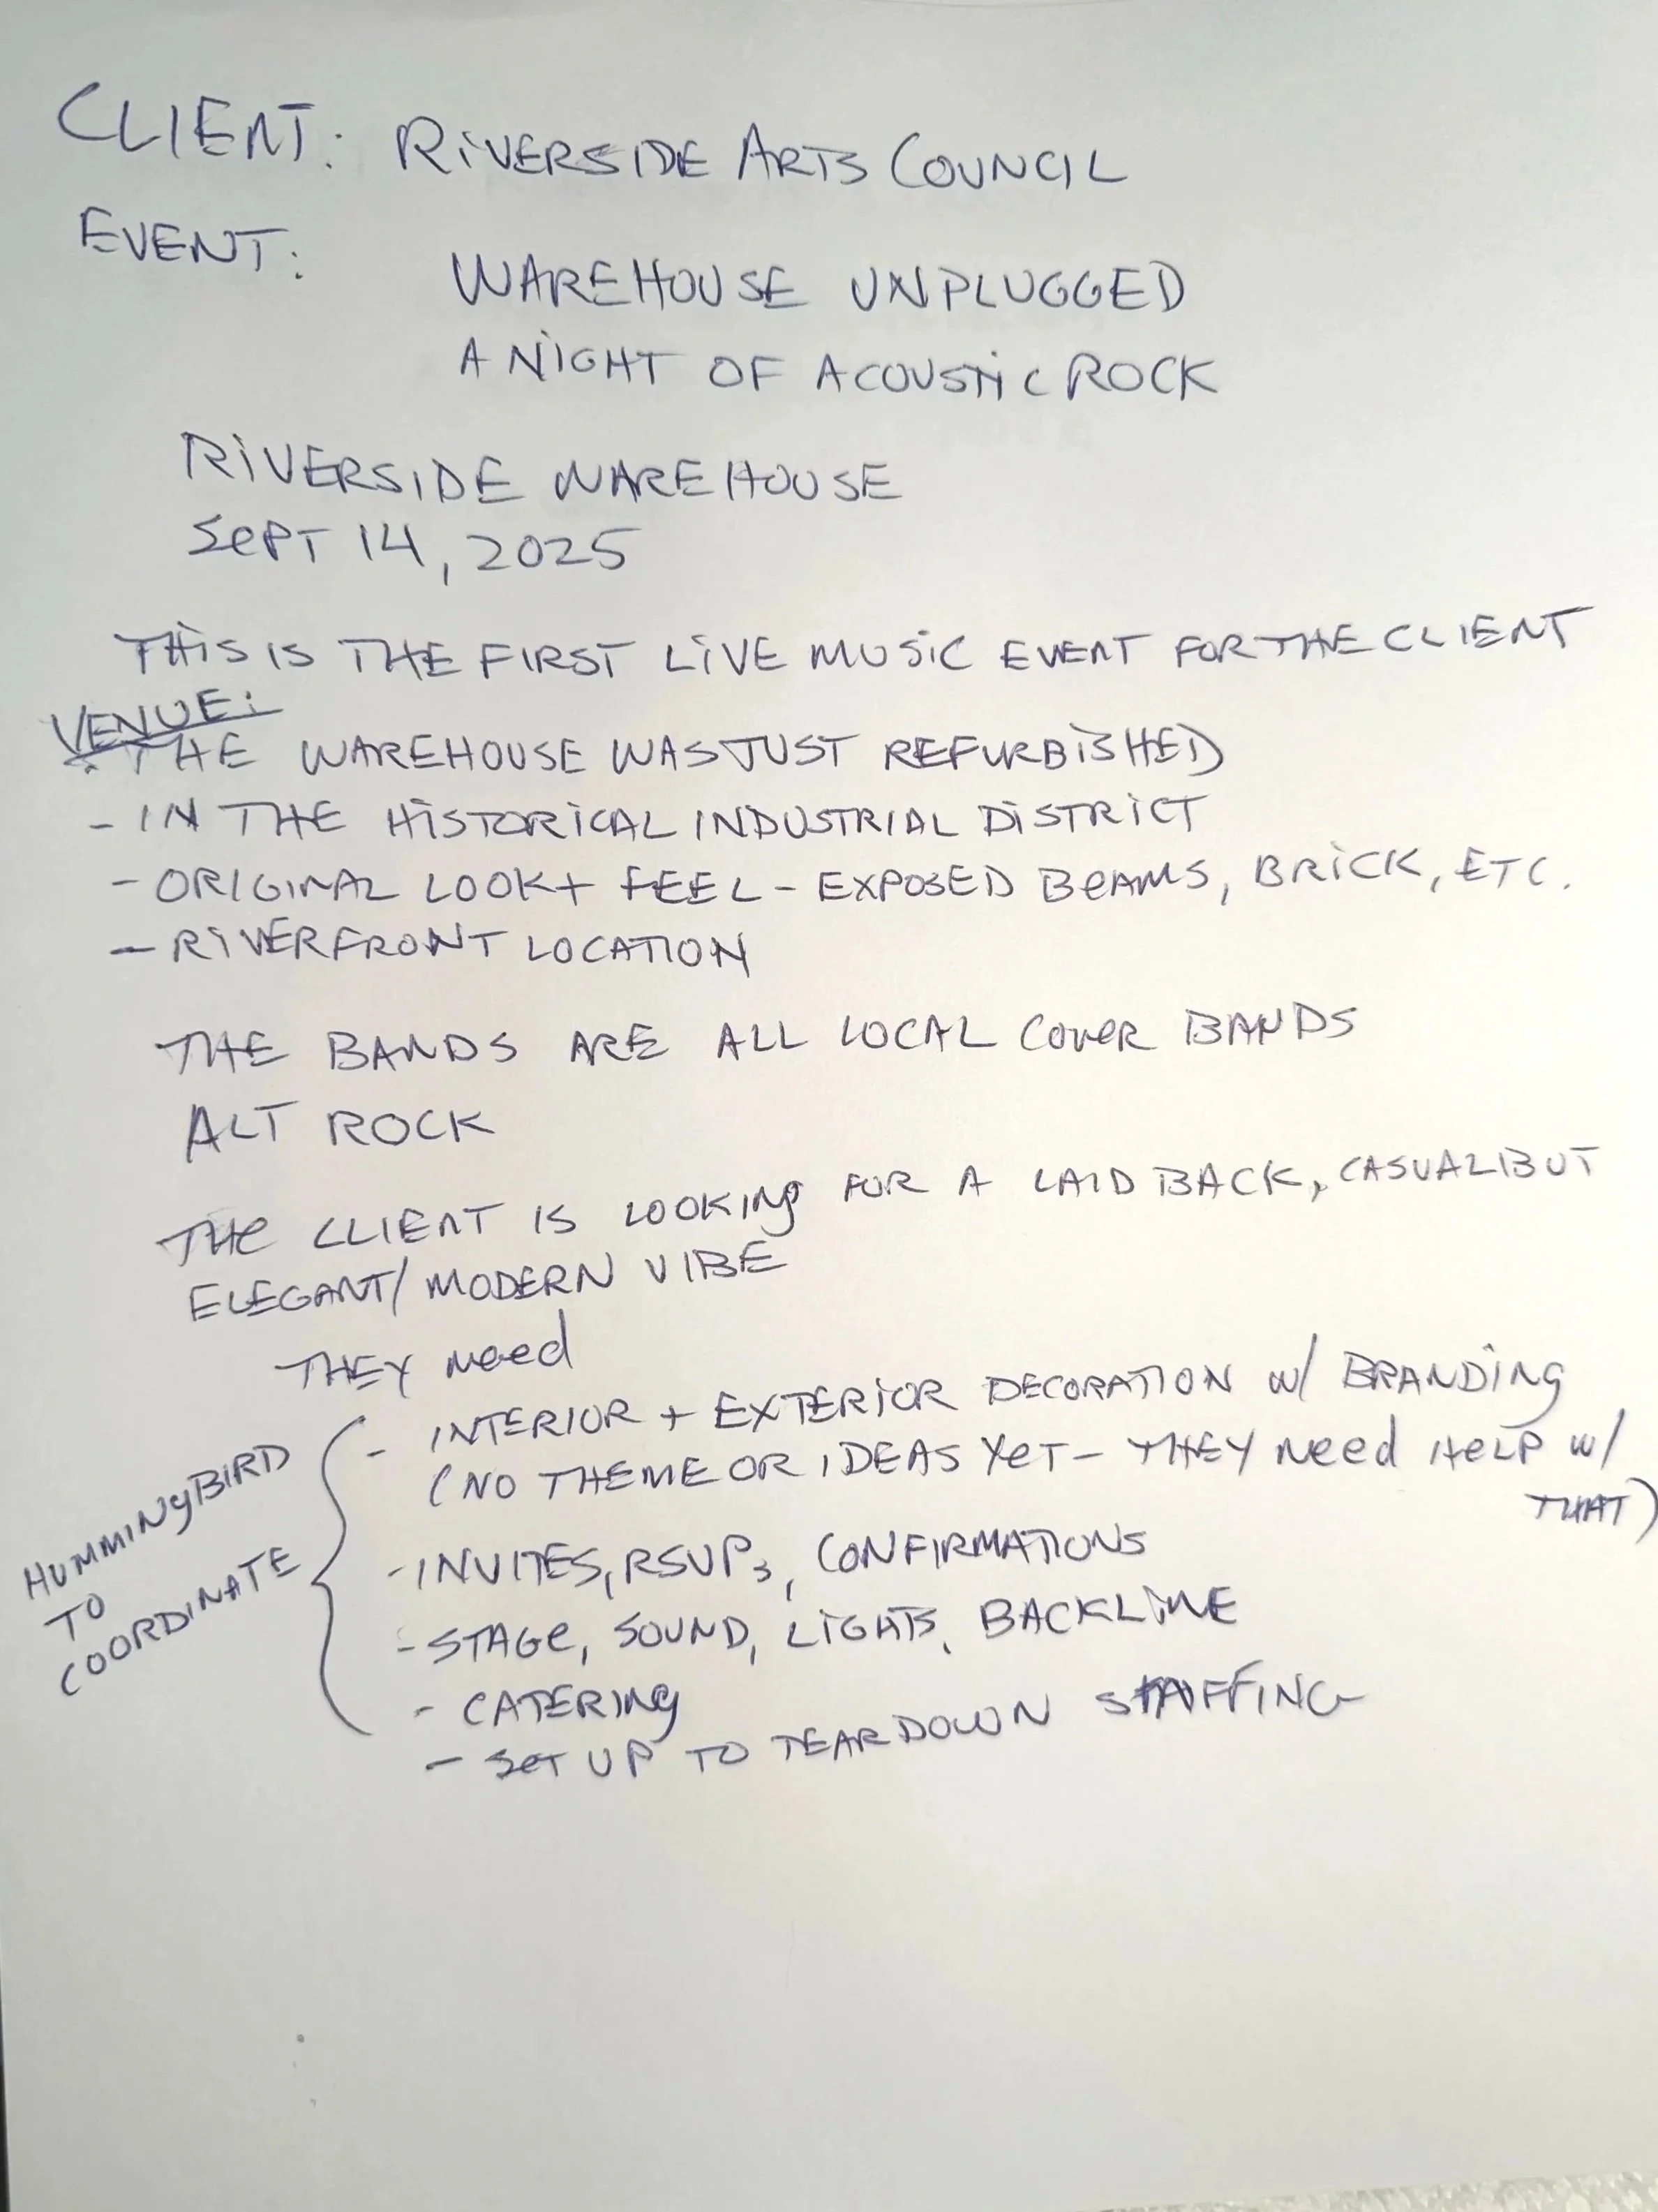 CLIENT: RIVERSIDE ARTS COUNCIL
EVENT:
WAREHOUSE UNPLUGGED
A NIGHT OF ACOUSTIC ROCK
RIVERSIDE WAREHOUSE
SEPT 14, 2025
THIS IS THE FIRST LIVE MUSIC EVENT FOR THE CLIENT
VENUE:
THE WAREHOUSE WAS JUST REFURBISHED
- IN THE HISTORICAL INDUSTRIAL DISTRICT
- ORIGINAL LOOK + FEEL - EXPOSED BEAMS, BRICK, ETC.
- RIVERFRONT LOCATION
THE BANDS ARE ALL LOCAL COVER BANDS
ALT ROCK
THE CLIENT IS LOOKING FOR A LAID BACK, CASUAL BUT
ELEGANT/MODERN VIBE
THEY NEED
- INTERIOR + EXTERIOR DECORATION W/ BRANDING
(NO THEME OR IDEAS YET - THEY NEED HELP W/
THAT)
- INVITES, RSVPs, CONFIRMATIONS
- STAGE, SOUND, LIGHTS, BACKLINE
- CATERING
- SET UP TO TEAR DOWN STAFFING
HUMMINGBIRD
TO
COORDINATE